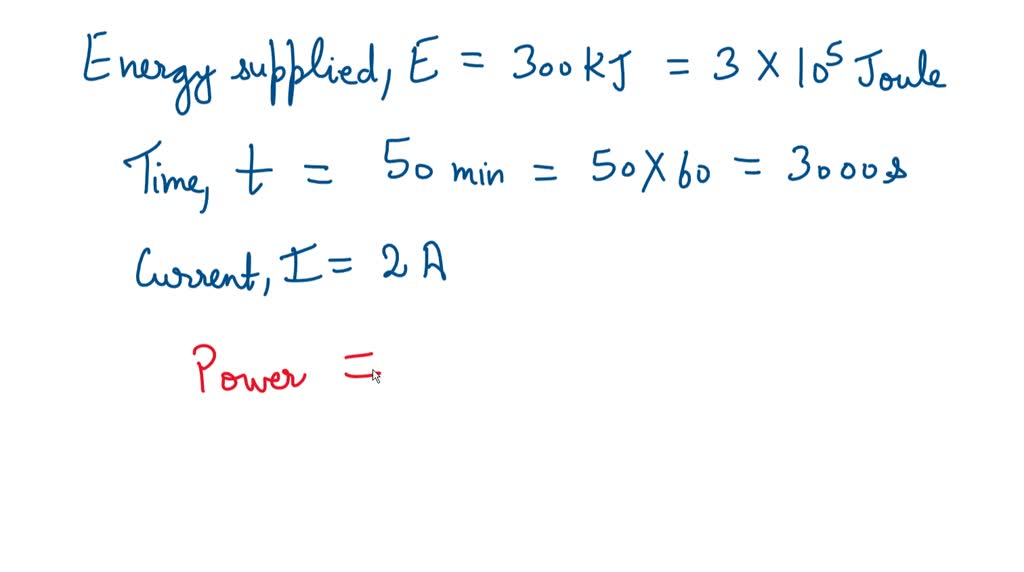 Energy supplied, E = 300 kJ = 3 × 10⁵ Joule
Time, t = 50 min = 50 × 60 = 3000 s
Current, I = 2 A
Power =